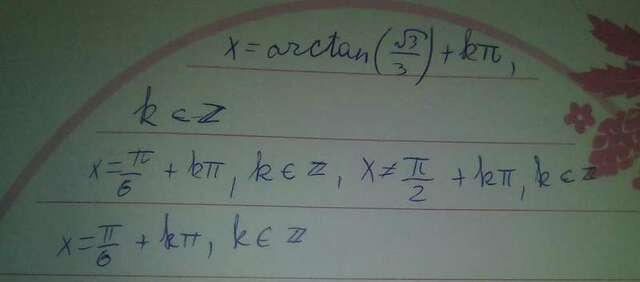 x = arctan(√3/3) + kπ,
k ∈ Z
x = π/6 + kπ, k ∈ Z, x ≠ π/2 + kπ, k ∈ Z
x = π/6 + kπ, k ∈ Z